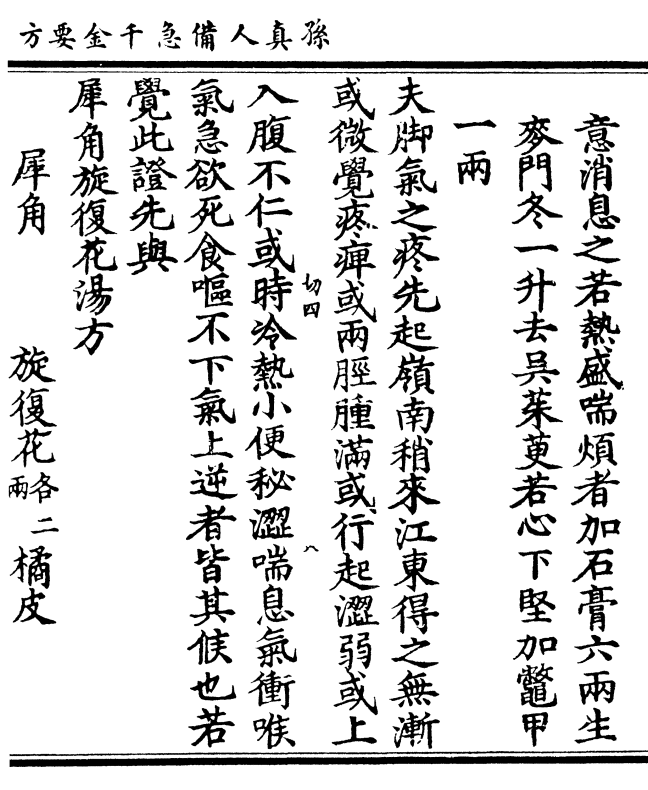 孫真人備急千金要方
意消息之若熱盛喘煩者加石膏六兩生
麥門冬一升去吴茱萸若心下堅加鼈甲
一兩
夫脚氣之疼先起嶺南稍來江東得之無漸
或微覺疼痺或兩脛腫滿或行起澀弱或上
入腹不仁或時冷熱小便秘澀喘息氣衝喉
切四
氣急欲死食嘔不下氣上逆者皆其候也若
覺此證先與
犀角旋復花湯方
犀角 旋復花各二兩 橘皮